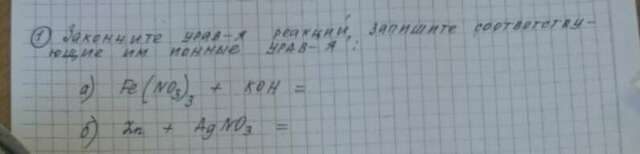 ① Закончите урав-я реакций, запишите соответству-
ющие им ионные урав-я:
а) Fe(NO₃)₃ + KOH =
б) Zn + AgNO₃ =